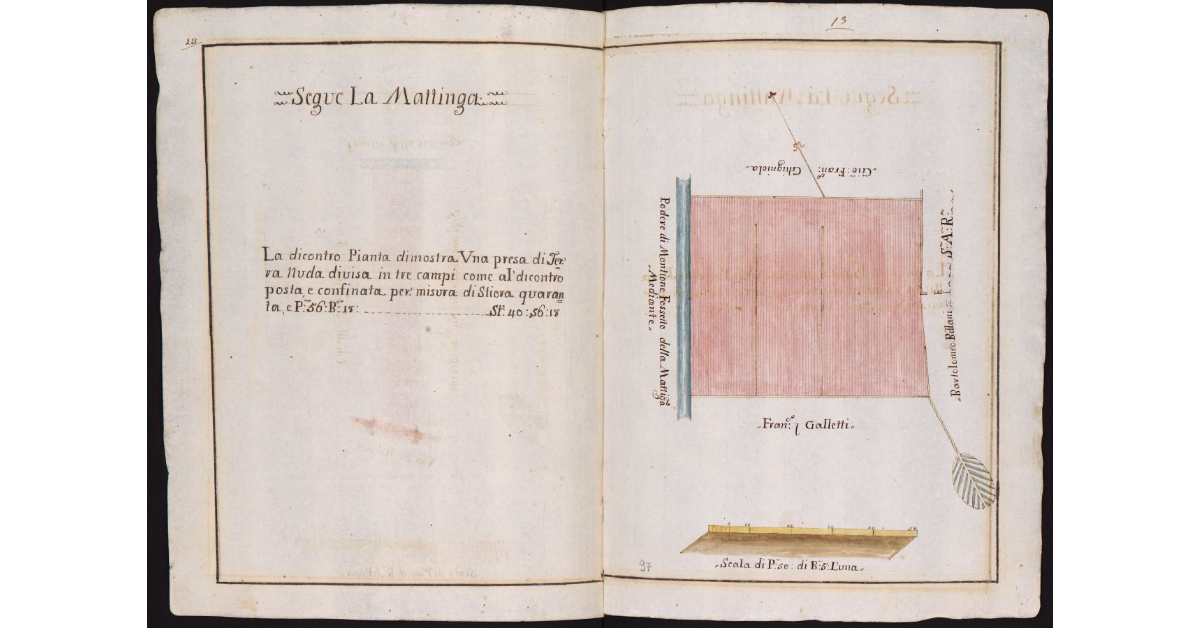 18
Segue La Mattinga
La dicontro Pianta dimostra Vna presa di Ter⸗
ra Nuda divisa in tre campi come al' dicontro
posta, e confinata per misura di Stiora quaran⸗
ta, e P.~ 56: B.~ 18: St: 40: 56: 18
13
Gio: Fran.º: Ghigniola
Podere di Montione Fossetto della Mattiga
Mediante
Bartolomeo S: A: R:
Fran.º: Galletti
97
Scala di P.~ 50: di B.~ 5: L'una